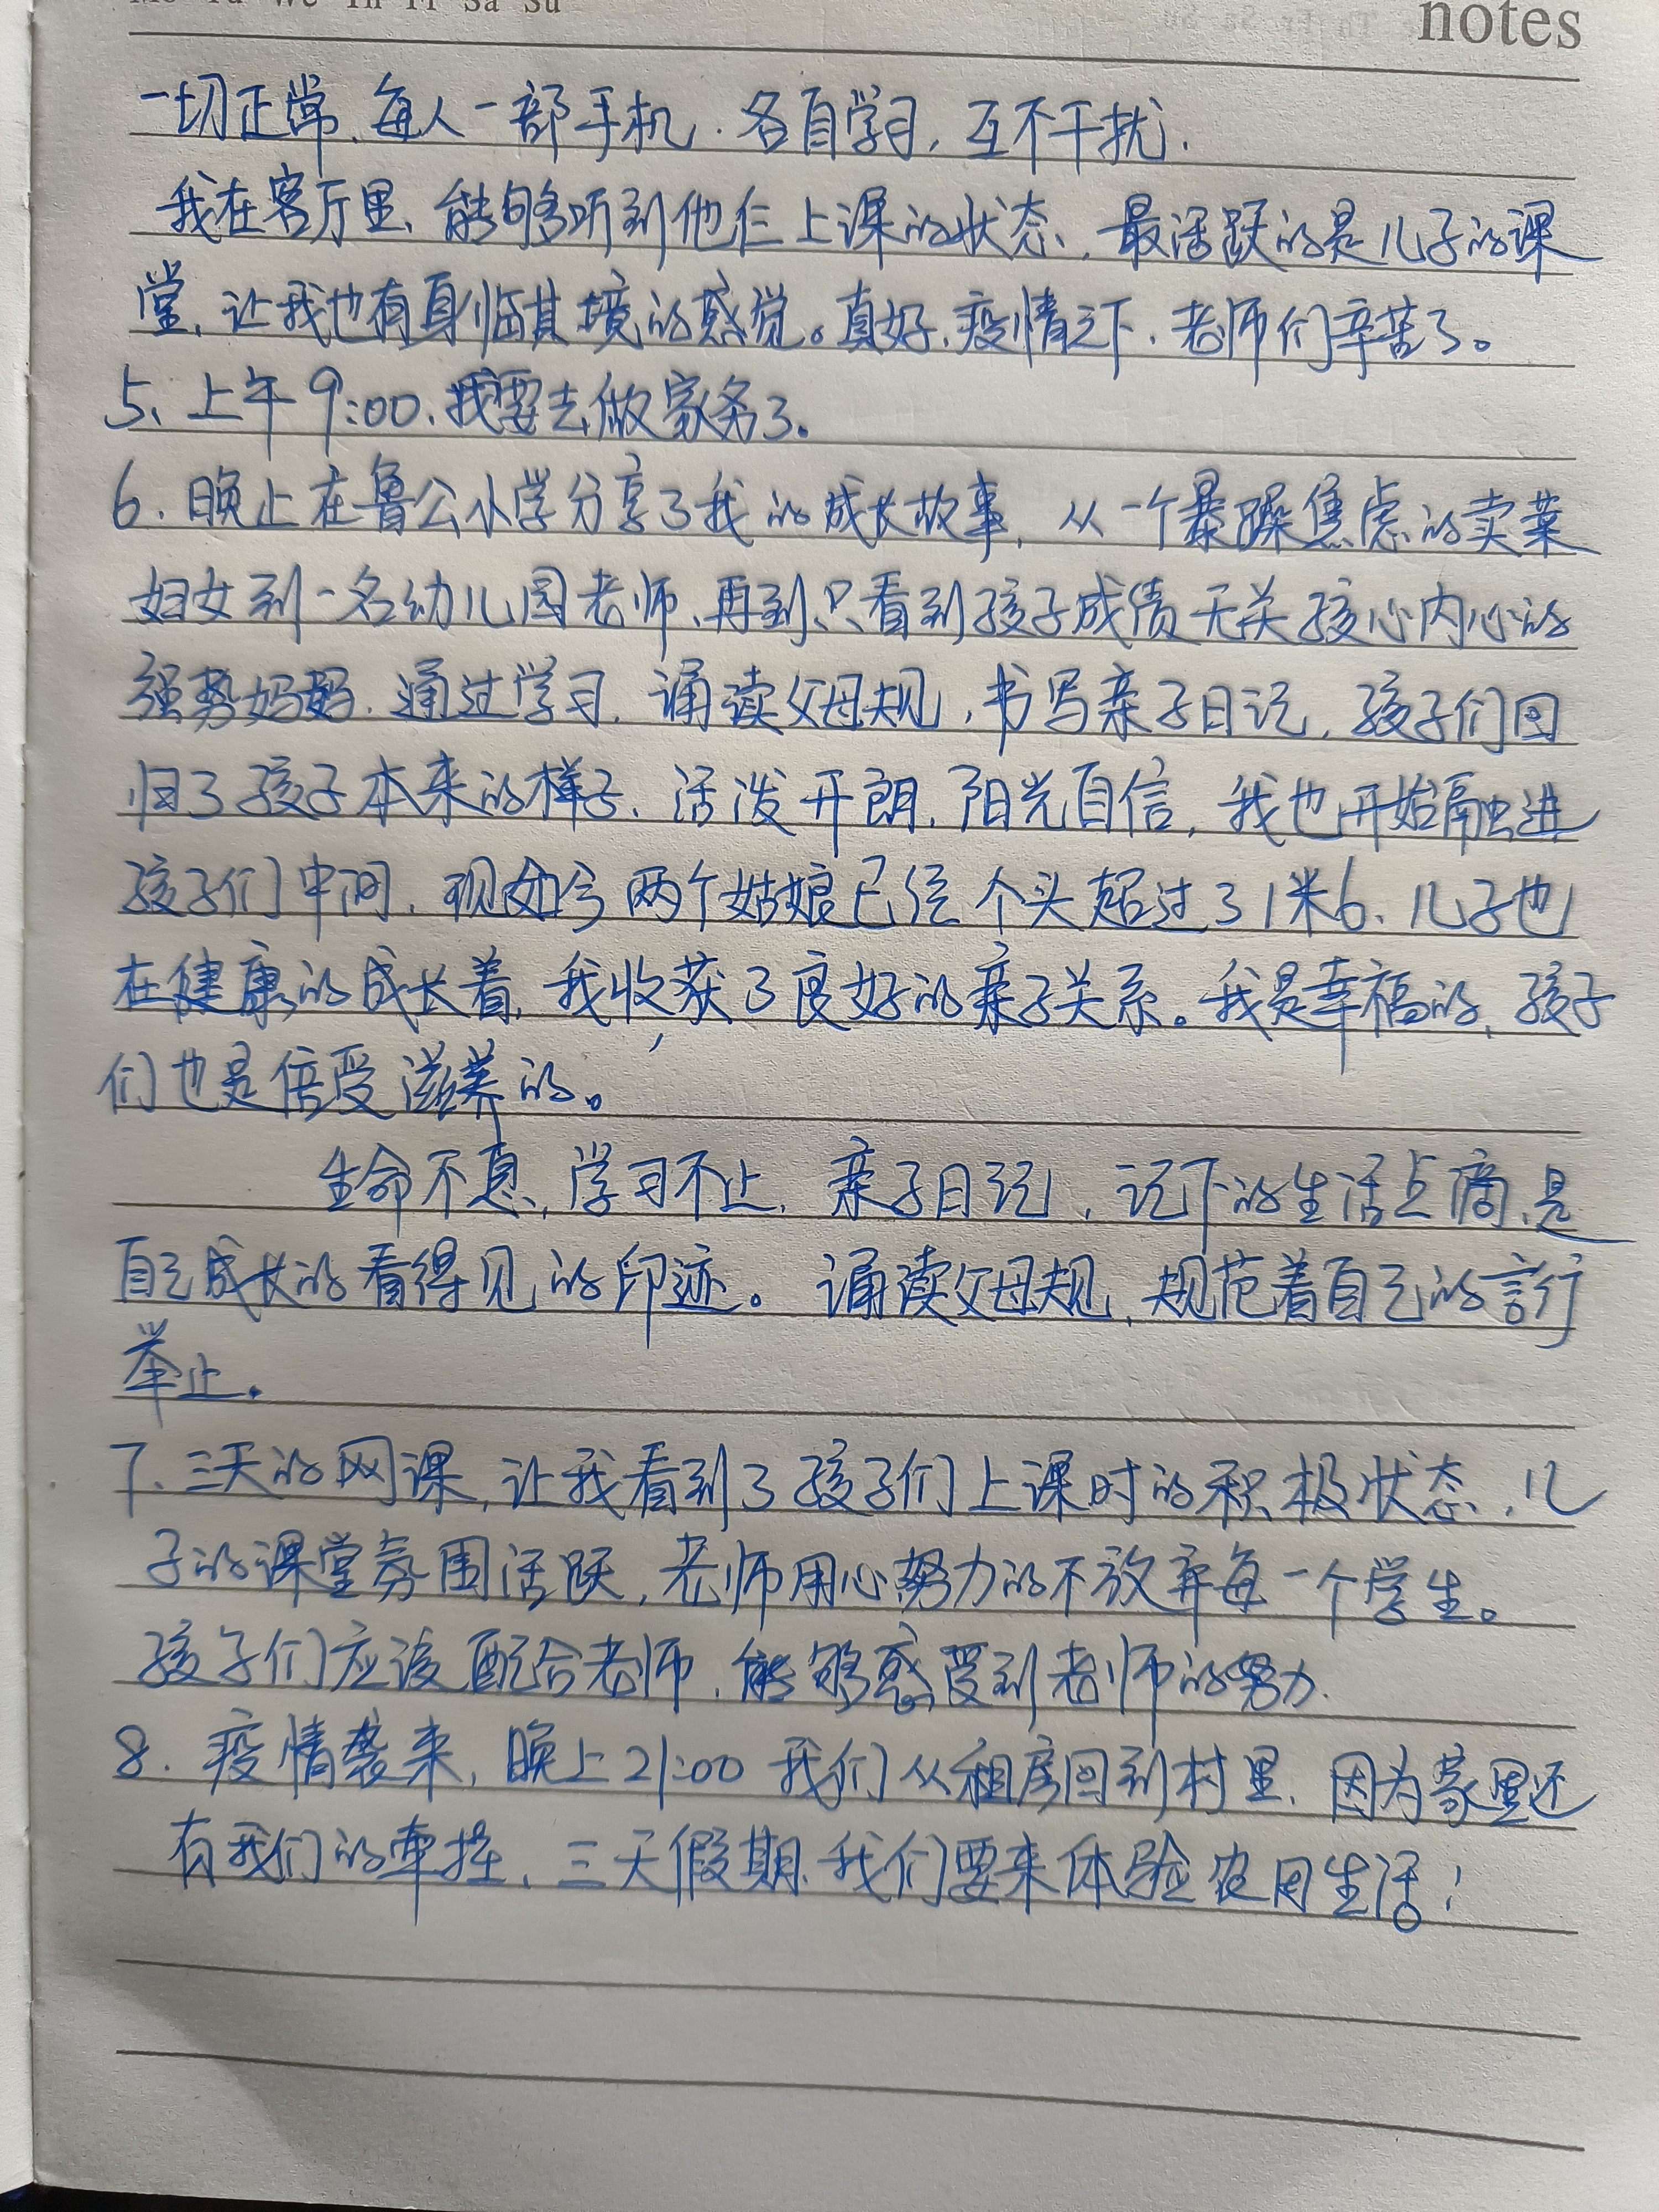 Mo Tu We Th Fr Sa Su
notes
一切正常、每人一部手机.各自学习,互不干扰.
我在客厅里、能够听到他仨上课的状态,最活跃的是儿子的课
堂,让我也有身临其境的感觉。真好、疫情之下、老师们辛苦了。
5、上午9:00、我要去做家务了。
6.晚上在鲁公小学分享了我的成长故事,从一个暴躁焦虑的卖菜
妇女到一名幼儿园老师、再到只看到孩子成绩无关孩心内心的
强势妈妈.通过学习.诵读父母规,书写亲子日记,孩子们回
归了孩子本来的样子、活泼开朗.阳光自信,我也开始融进
孩子们中间,现如今两个姑娘已经个头超过了1米6、儿子也
在健康的成长着,我收获了良好的亲子关系。我是幸福的,孩子
们也是倍受滋养的。
生命不息,学习不止,亲子日记,记下的生活点滴,是
自己成长的看得见的印迹。诵读父母规,规范着自己的言行
举止。
7、三天的网课,让我看到了孩子们上课时的积极状态,儿
子的课堂氛围活跃,老师用心努力的不放弃每一个学生。
孩子们应该配合老师,能够感受到老师的努力.
8.疫情袭来,晚上21:00我们从租房回到村里,因为家里还
有我们的牵挂,三天假期、我们要来体验农田生活!